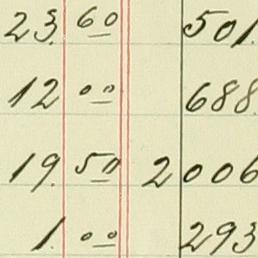 23. 60 501.
12 00 688.
19. 50 2006
1. 00 293